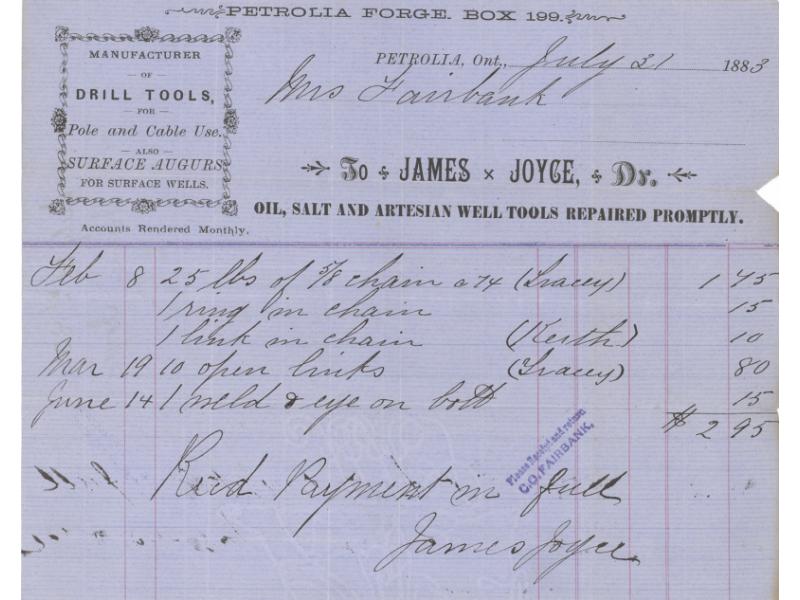 PETROLIA FORGE. BOX 199.
MANUFACTURER
— OF —
DRILL TOOLS,
— FOR —
Pole and Cable Use.
— ALSO —
SURFACE AUGURS
FOR SURFACE WELLS.
Accounts Rendered Monthly.
PETROLIA, Ont., July 31 1883
Mrs Fairbank
To JAMES × JOYCE, Dr.
OIL, SALT AND ARTESIAN WELL TOOLS REPAIRED PROMPTLY.
Feb 8 25 lbs of 5/8 chain a 7¢ (Tracey) 1 75
1 ring in chain 15
1 link in chain (Keith) 10
Mar 19 10 open links (Tracey) 80
June 14 1 weld & eye on bolt 15
$ 2 95
Please Receipt and return
C.O. FAIRBANK.
Recd Payment in full
James Joyce